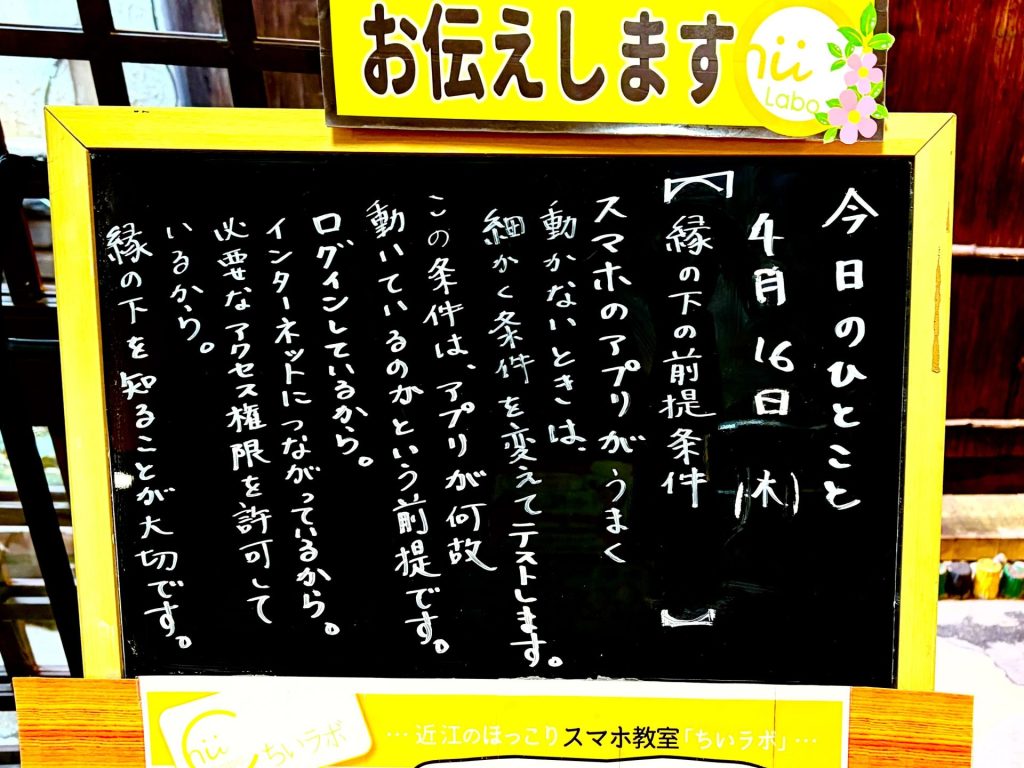 お伝えします
hii
Labo
今日のひとこと
4月16日(木)
【縁の下の前提条件】
スマホのアプリがうまく
動かないときは、
細かく条件を変えてテストします。
この条件は、アプリが何故
動いているのかという前提です。
ログインしているから。
インターネットにつながっているから。
必要なアクセス権限を許可して
いるから。
縁の下を知ることが大切です。
Chii
ちいラボ
…近江のほっこりスマホ教室「ちいラボ」…